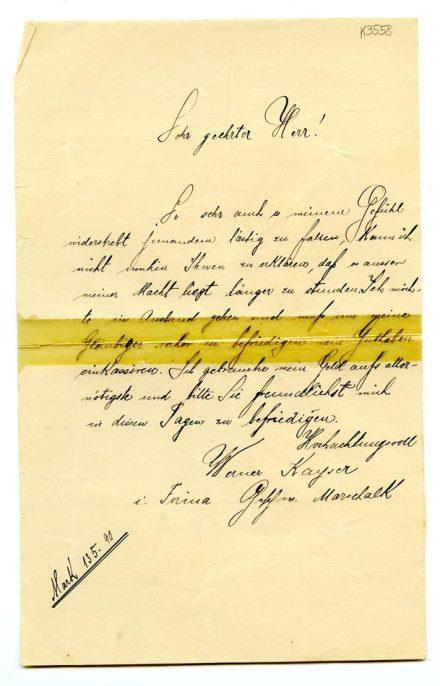 K3558
Sehr geehrter Herr!
So sehr auch es meinem Gefühl
widerstrebt jemandem lästig zu fallen, kann ich
nicht umhin Ihnen zu erklären, daß es ausser
meiner Macht liegt länger zu stunden. Ich möch-
te in Ausland gehen und muß um meine
Gläubiger vorher zu befriedigen mein Guthaben
einkassiren. Ich gebrauche mein Geld aufs aller-
nötigste und bitte Sie freundlichst mich
in diesen Tagen zu befriedigen.
Hochachtungsvoll
Werner Kayser
i. Firma Marschalk
Mark 135.90